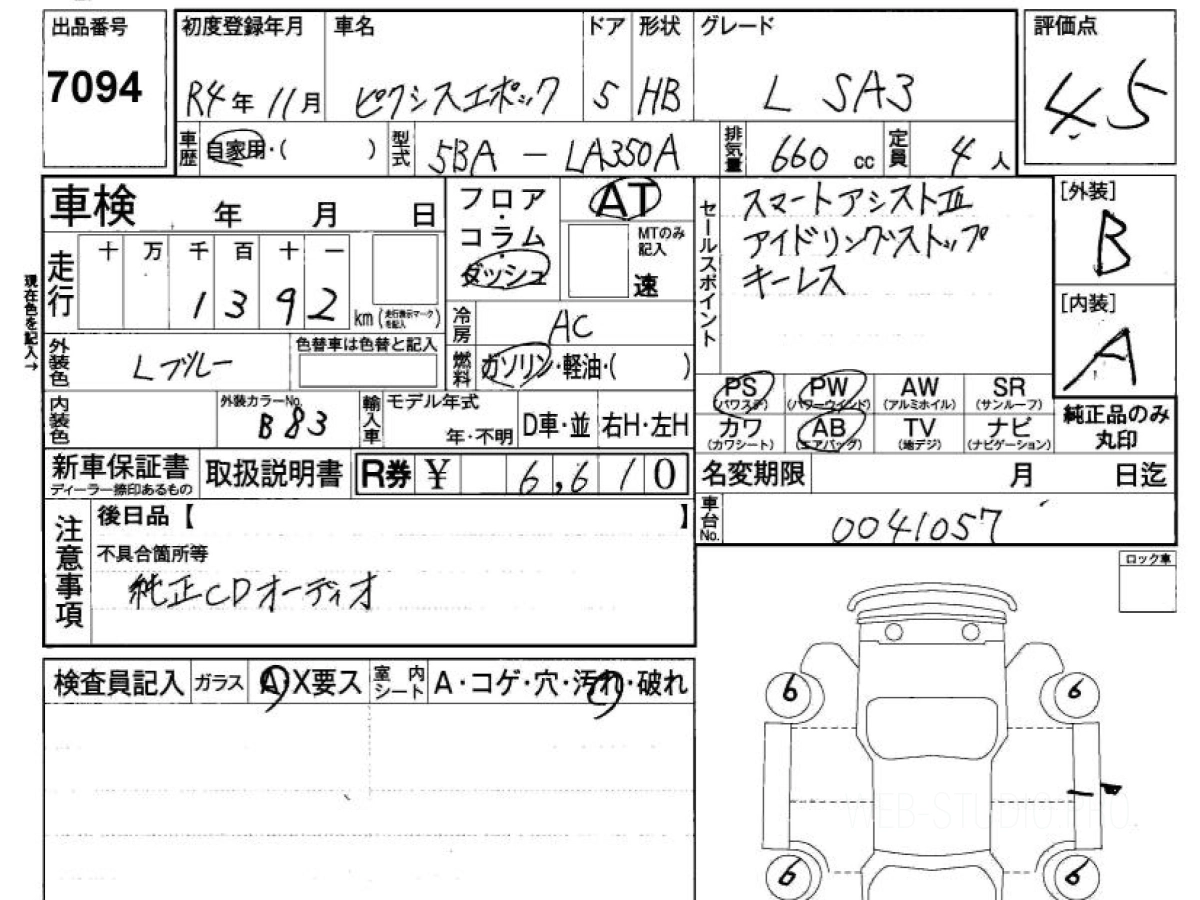 出品番号
7094
初度登録年月
R4年11月
車名
ピクシスエポック
ドア
5
形状
HB
グレード
L SA3
評価点
4.5
車歴
自家用・( )
型式
5BA-LA350A
排気量
660 cc
定員
4人
車検 年 月 日
フロア・コラム・ダッシュ
AT
MTのみ記入
速
セールスポイント
スマートアシストⅢ
アイドリングストップ
キーレス
[外装]
B
[内装]
A
現在色を記入→
走行
十 万 千 百 十 一
1392
km(走行表示マークを記入)
冷房
AC
外装色
Lブルー
色替車は色替と記入
燃料
ガソリン・軽油・( )
PS
(パワステ)
PW
(パワーウインド)
AW
(アルミホイル)
SR
(サンルーフ)
カワ
(カワシート)
AB
(エアバッグ)
TV
(地デジ)
ナビ
(ナビゲーション)
純正品のみ
丸印
内装色
外装カラーNo.
B83
輸入車
モデル年式
年・不明
D車・並
右H・左H
新車保証書
ディーラー捺印あるもの
取扱説明書
R券 ¥ 6,610
名変期限 月 日迄
車台No.
0041057
注意事項
後日品【 】
不具合箇所等
純正CDオーディオ
ロック車
検査員記入
ガラス
A・X要ス
室内シート
A・コゲ・穴・汚れ・破れ
6
6
6
6
WEB-STUDIO.PRO.